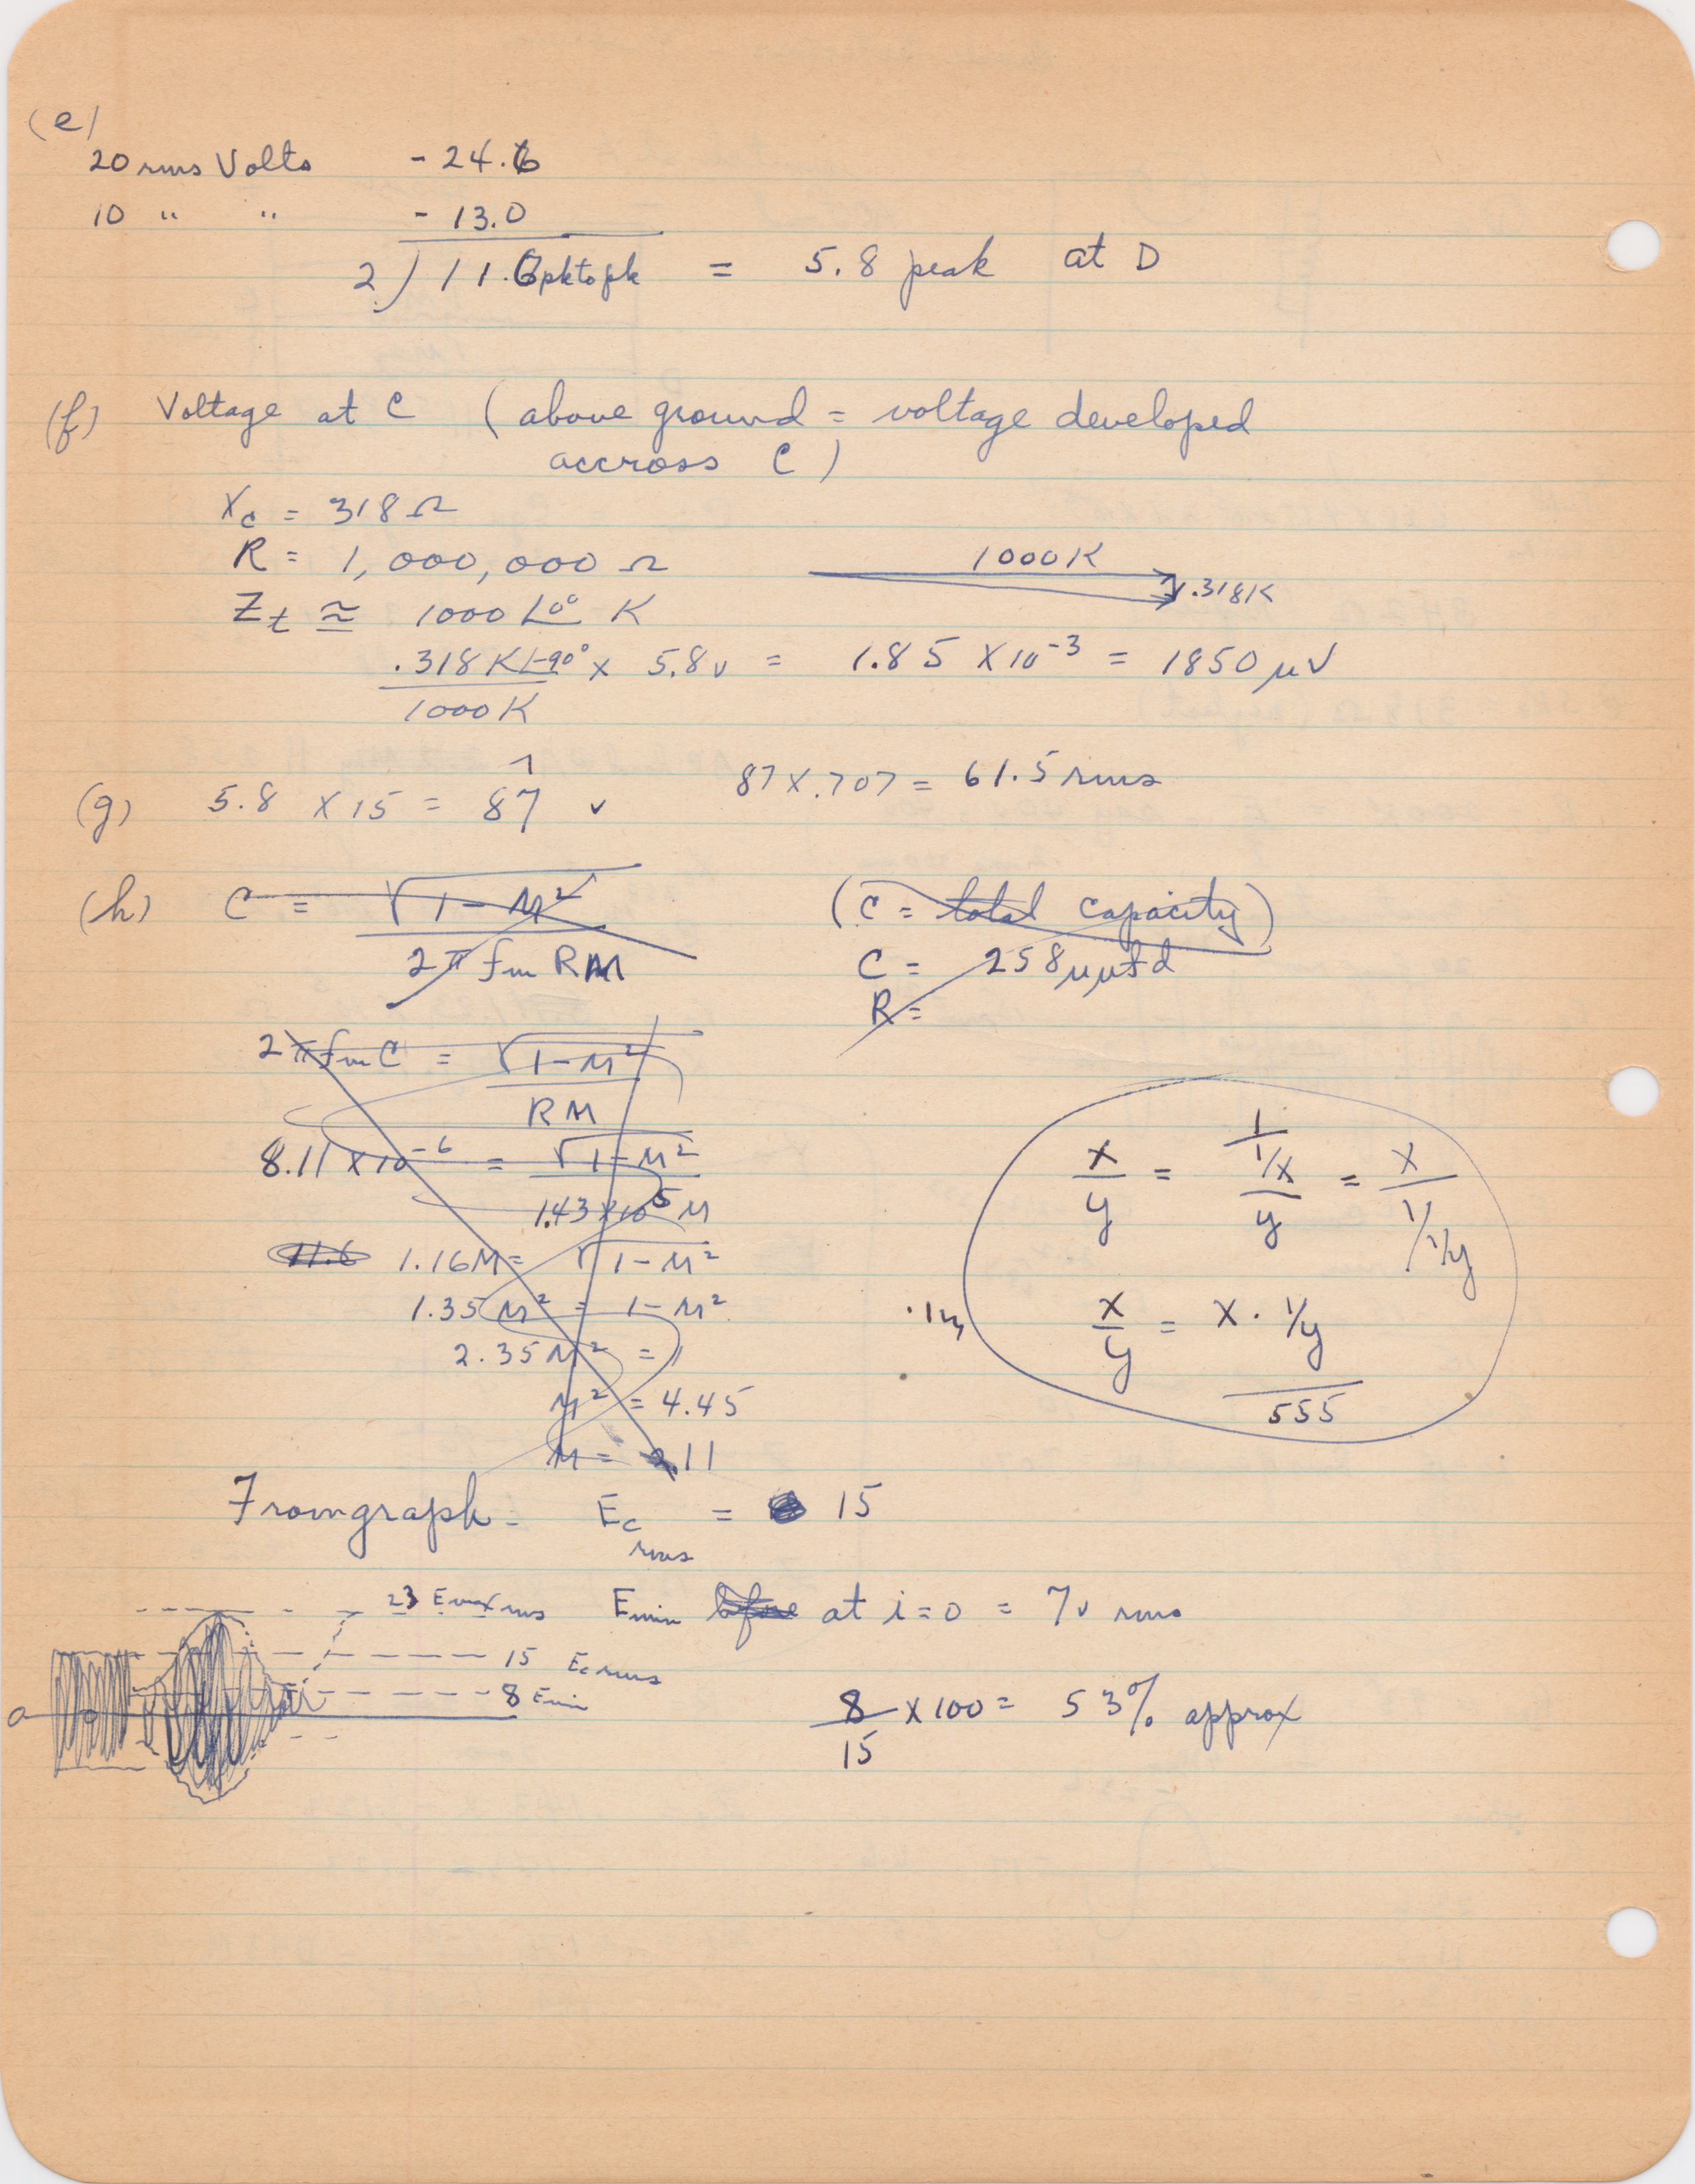 (e)
20 rms Volts - 24.6
10 " " - 13.0
2 ) 11.6 pk to pk = 5.8 peak at D
(f) Voltage at C (above ground = voltage developed
accross C)
Xc = 318 Ω
R = 1,000,000 Ω
1000K
.318K
Zt ≅ 1000 ∠0° K
.318K∠-90° × 5.8v = 1.85 × 10⁻³ = 1850 μV
1000K
(g) 5.8 × 15 = 87 v 87 × .707 = 61.5 rms
(h) C = √1 - M² (C = total capacity)
2π fm RM C = 258 μμfd
R =
2π fm C = √1 - M²
RM
8.11 × 10⁻⁶ = √1 - M²
1.43 × 10⁵ M
11.6 1.16M = √1 - M²
1.35 M² = 1 - M²
2.35 M² = 1
M² = 4.45
M = 2.11
x/y = 1/1/x / y = x / 1/1/y
x/y = x · 1/y
555
From graph - Ec rms = 15
23 Emax rms Emin before at i=0 = 7v rms
15 Ec rms
8 Emin
0
8/15 × 100 = 53% approx